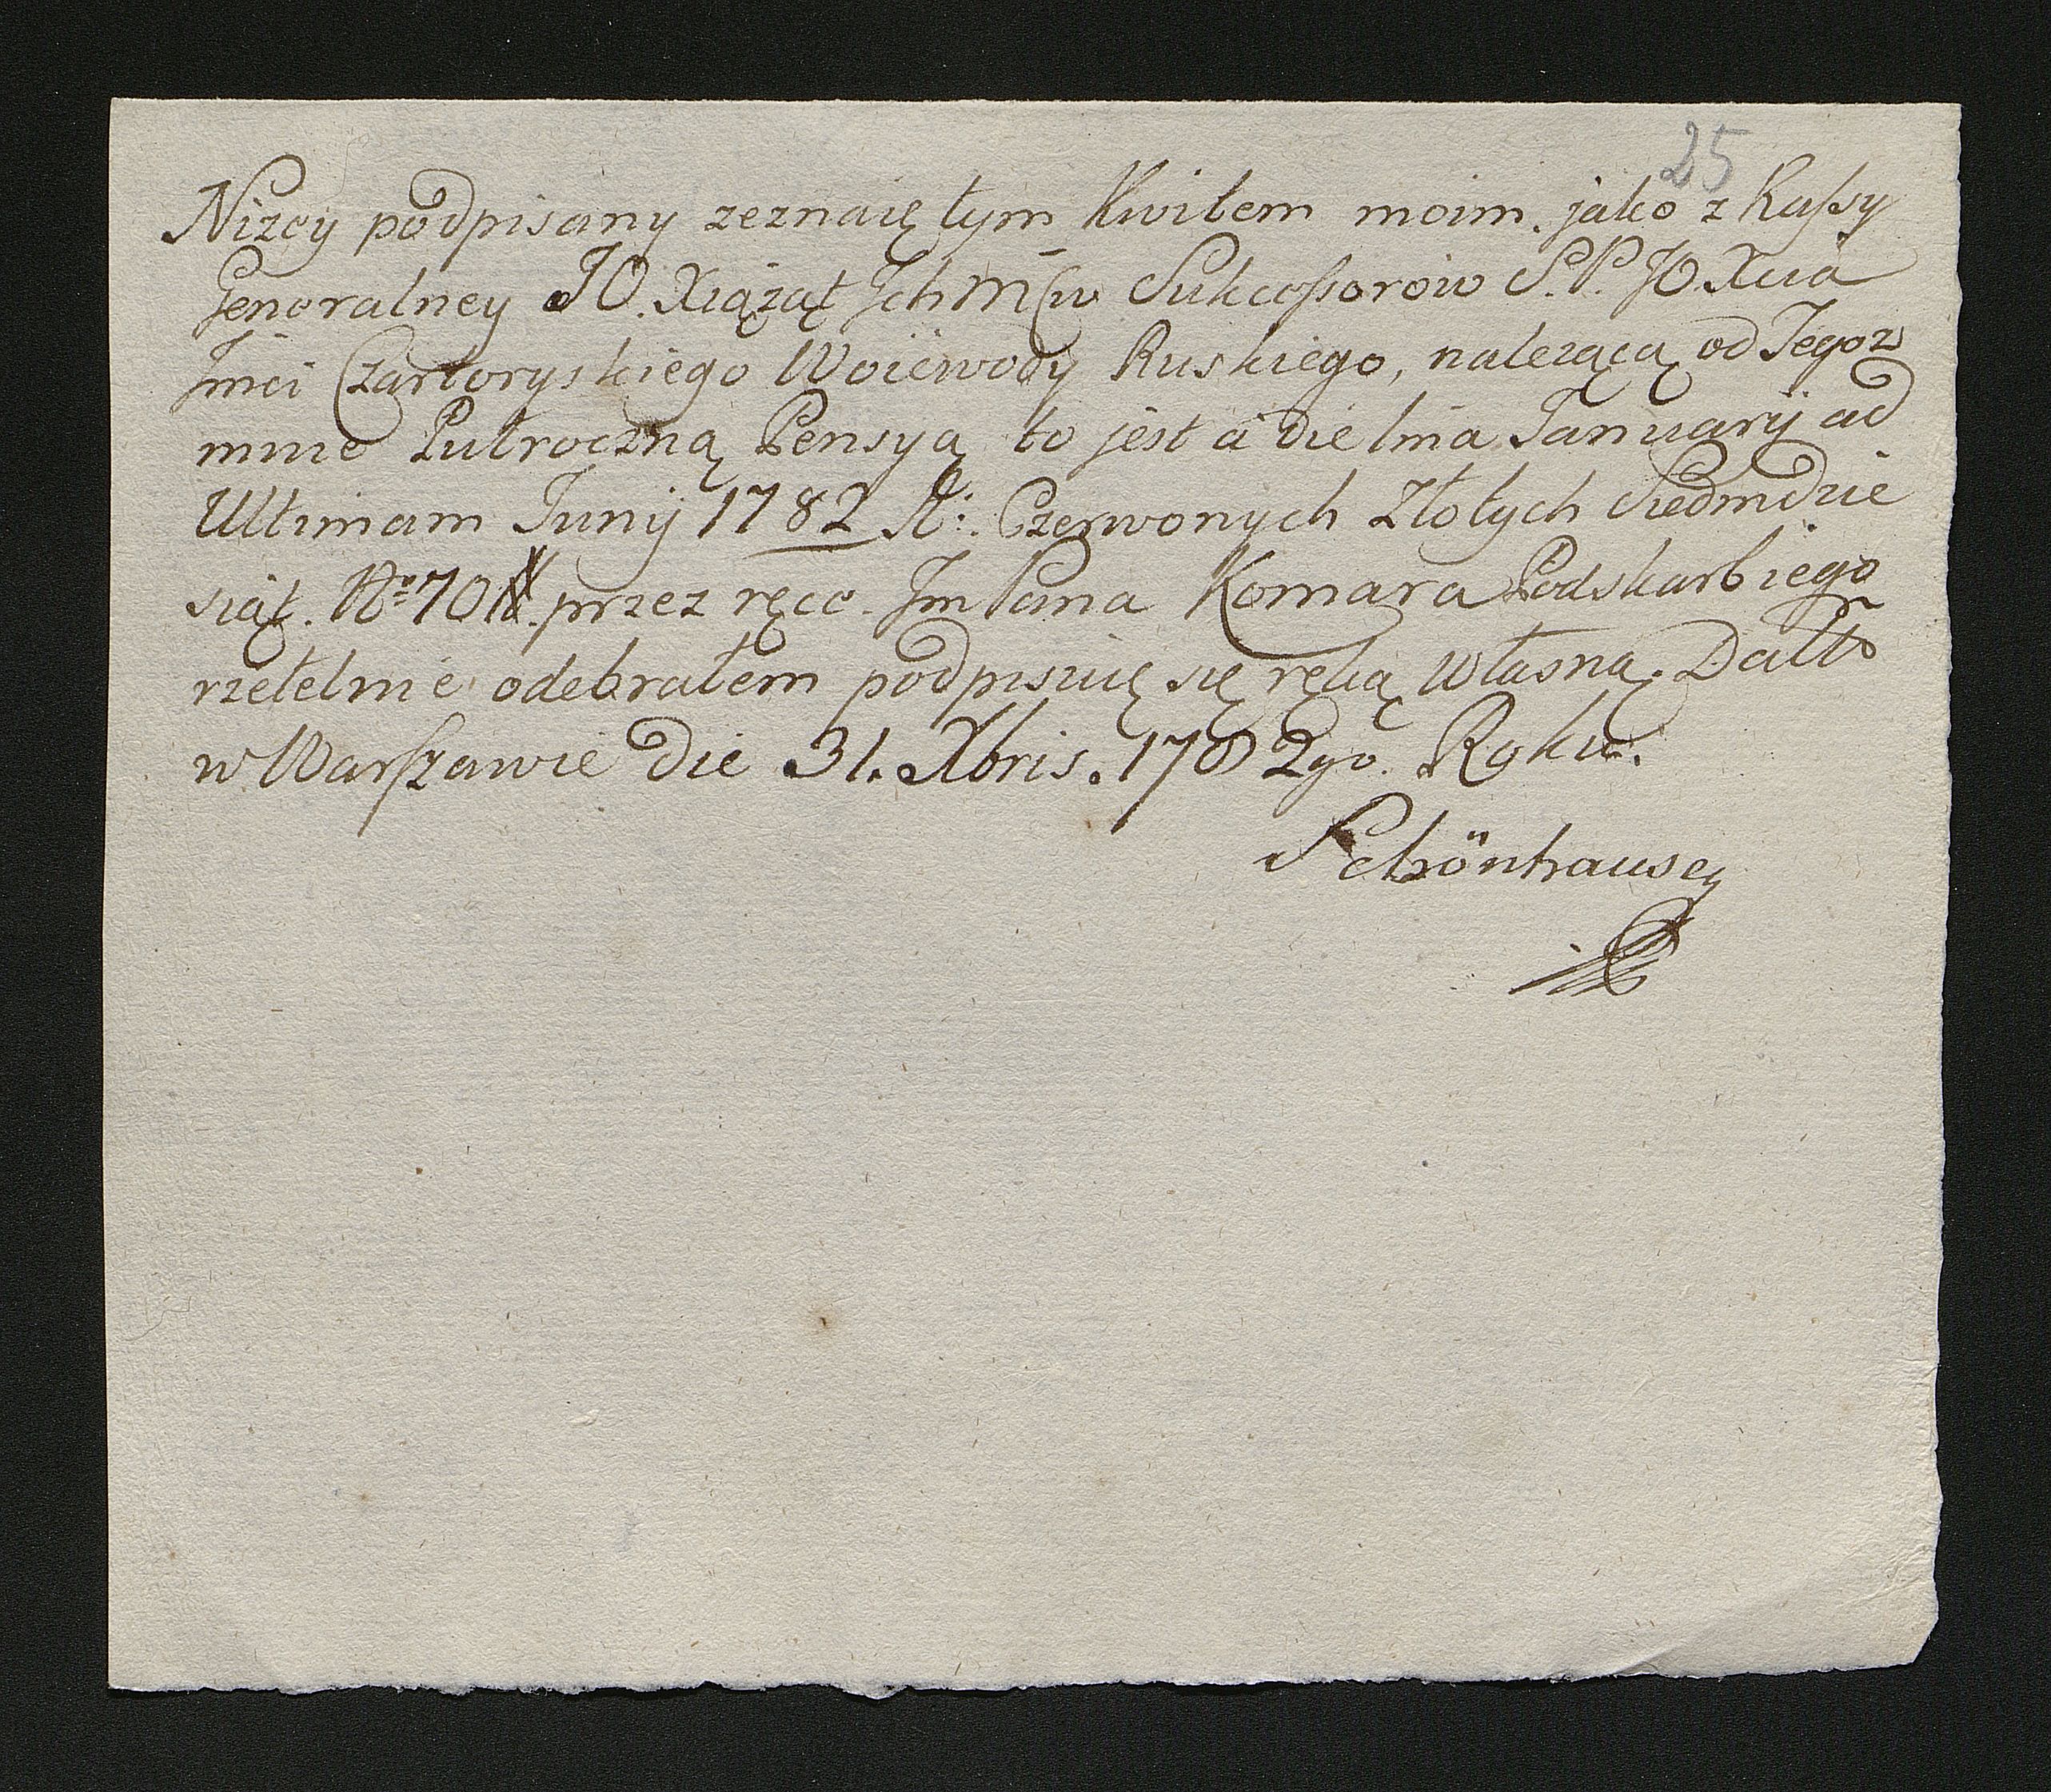 25
Nizey podpisany zeznaię tym Kwitem moim. jako z Kassy
Generalney JO. Xiążąt Ich Mćiw Sukcessorow S.P. JO. Xcia
Jmći Czartoryskiego Woiewody Ruskiego, nalezącą od Tegoz
mnie Pułroczną Pensyą to jest a die 1ma January ad
Ultimam Juny 1782 A: Czerwonych Złotych Siedmdzie
siąt. No 70 przez ręce Jm Pana Komara Podskarbiego
rzetelnie odebrałem podpisuię się ręką własną. Datt
w Warszawie die 31. Xbris. 1782go. Roku.
Schönhausen